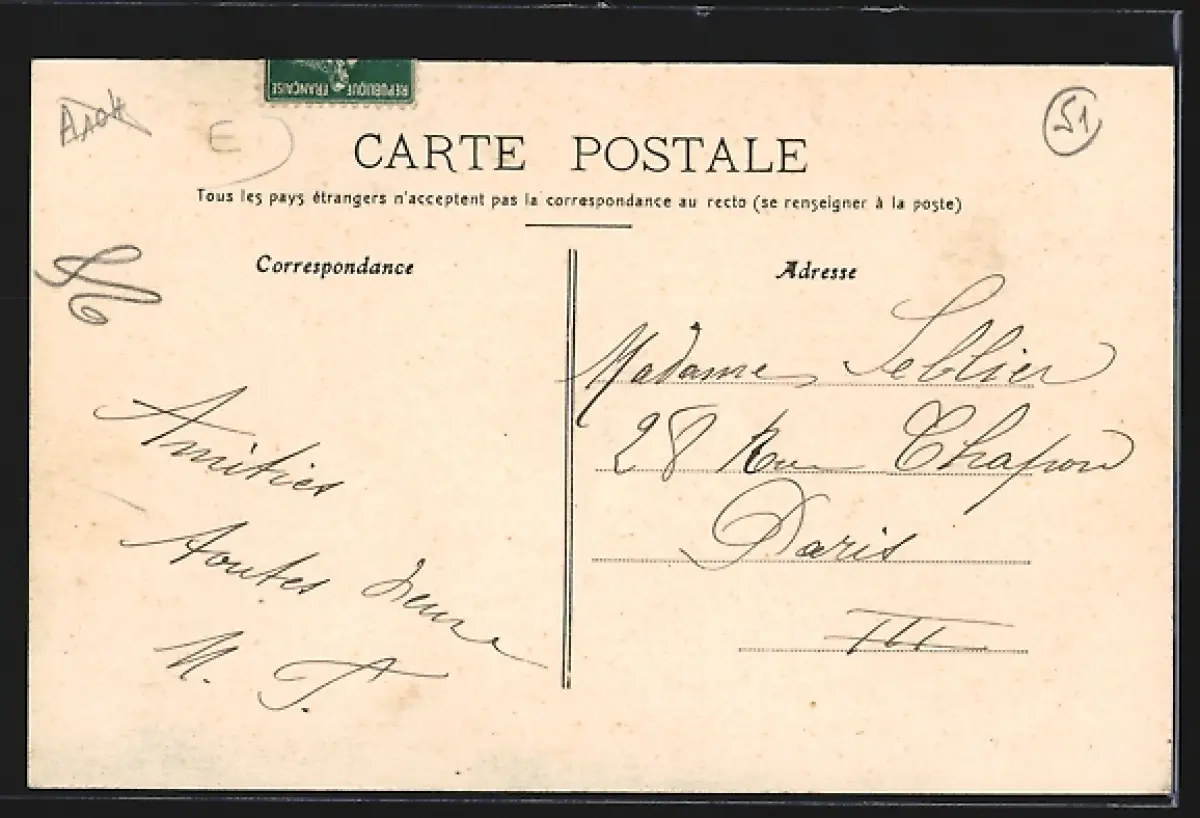 REPUBLIQUE FRANÇAISE
51
E
CARTE POSTALE
Tous les pays étrangers n'acceptent pas la correspondance au recto (se renseigner à la poste)
Correspondance
Amitiés
toutes deux
M. T.
Adresse
Madame Leblier
28 Rue Chapon
Paris
III